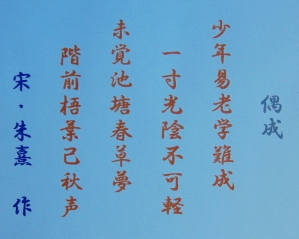 偶成
少年易老学難成
一寸光陰不可軽
未覚池塘春草夢
階前梧葉已秋声
宋・朱熹 作